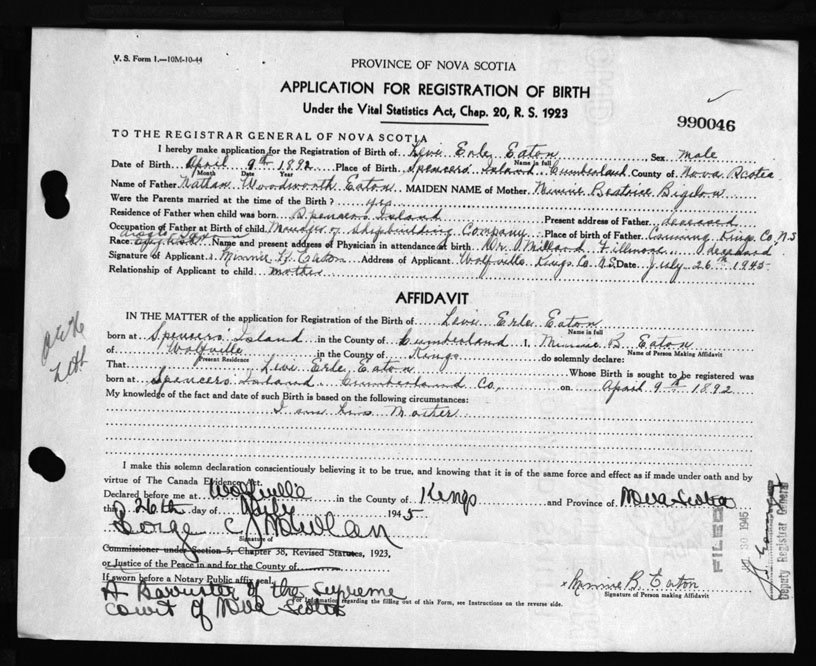 V. S. Form 1.—10M-10-44
PROVINCE OF NOVA SCOTIA
APPLICATION FOR REGISTRATION OF BIRTH
Under the Vital Statistics Act, Chap. 20, R. S. 1923
990046
TO THE REGISTRAR GENERAL OF NOVA SCOTIA
I hereby make application for the Registration of Birth of Levi Erle Eaton, Sex male
Name in full
Date of Birth April 9th 1892 Place of Birth Spencers Island Cumberland County of Nova Scotia
Month Date Year
Name of Father Nathan Woodworth Eaton MAIDEN NAME of Mother Minnie Beatrice Bigelow
Were the Parents married at the time of the Birth? yes
Residence of Father when child was born Spencers Island Present address of Father deceased
Occupation of Father at Birth of child Manager of Shipbuilding Company Place of birth of Father Canning Kings Co. N.S
Race Anglo Saxon Name and present address of Physician in attendance at birth Dr. Millard Fillmore deceased
Signature of Applicant Minnie B. Eaton Address of Applicant Wolfville Kings Co. N.S. Date July 26th 1945
Relationship of Applicant to child mother
AFFIDAVIT
IN THE MATTER of the application for Registration of Birth of Levi Erle Eaton
Name in full
born at Spencers' Island in the County of Cumberland I, Minnie B. Eaton
Name of Person Making Affidavit
of Wolfville in the County of Kings do solemnly declare:
Present Residence
That Levi Erle Eaton Whose Birth is sought to be registered was
born at Spencers Island Cumberland Co. on April 9th 1892
My knowledge of the fact and date of such Birth is based on the following circumstances:
I am his Mother
I make this solemn declaration conscientiously believing it to be true, and knowing that it is of the same force and effect as if made under oath and by
virtue of The Canada Evidence Act.
Declared before me at Wolfville in the County of Kings and Province of Nova Scotia
this 26th day of July 1945
George C
Signature of
Commissioner under Section 5, Chapter 38, Revised Statutes, 1923,
or Justice of the Peace in and for the County of
If sworn before a Notary Public affix seal.
A Barrister of the Supreme
Court of Nova Scotia
For Information regarding the filling out of this Form, see Instructions on the reverse side.
x Minnie B. Eaton
Signature of Person making Affidavit
FILED
30 1945
Deputy Registrar General